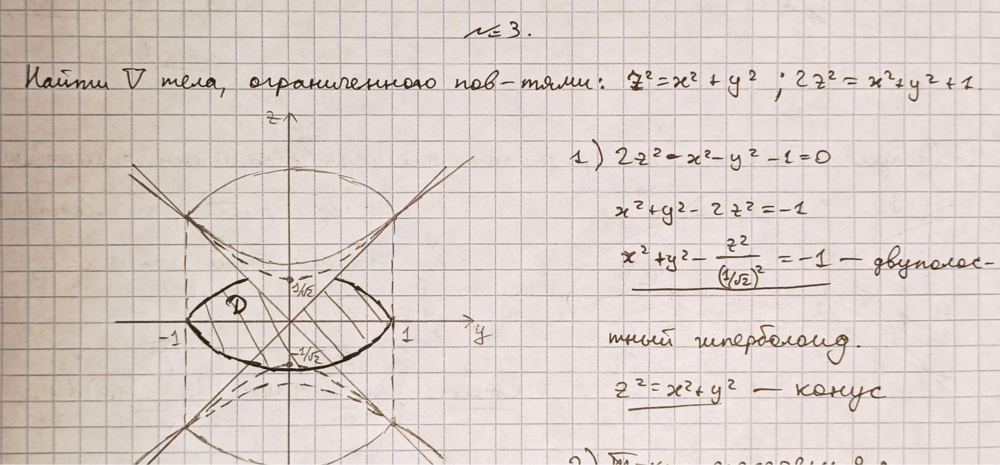 №3.
Найти V тела, ограниченного пов-тями: z²=x²+y² ; 2z²=x²+y²+1.
z
1) 2z²-x²-y²-1=0
x²+y²-2z²=-1
x²+y²-z²/(1/√2)²=-1 — двуполос-
1/√2
D
-1
1
y
-1/√2
тный гиперболоид.
z²=x²+y² — конус
2)